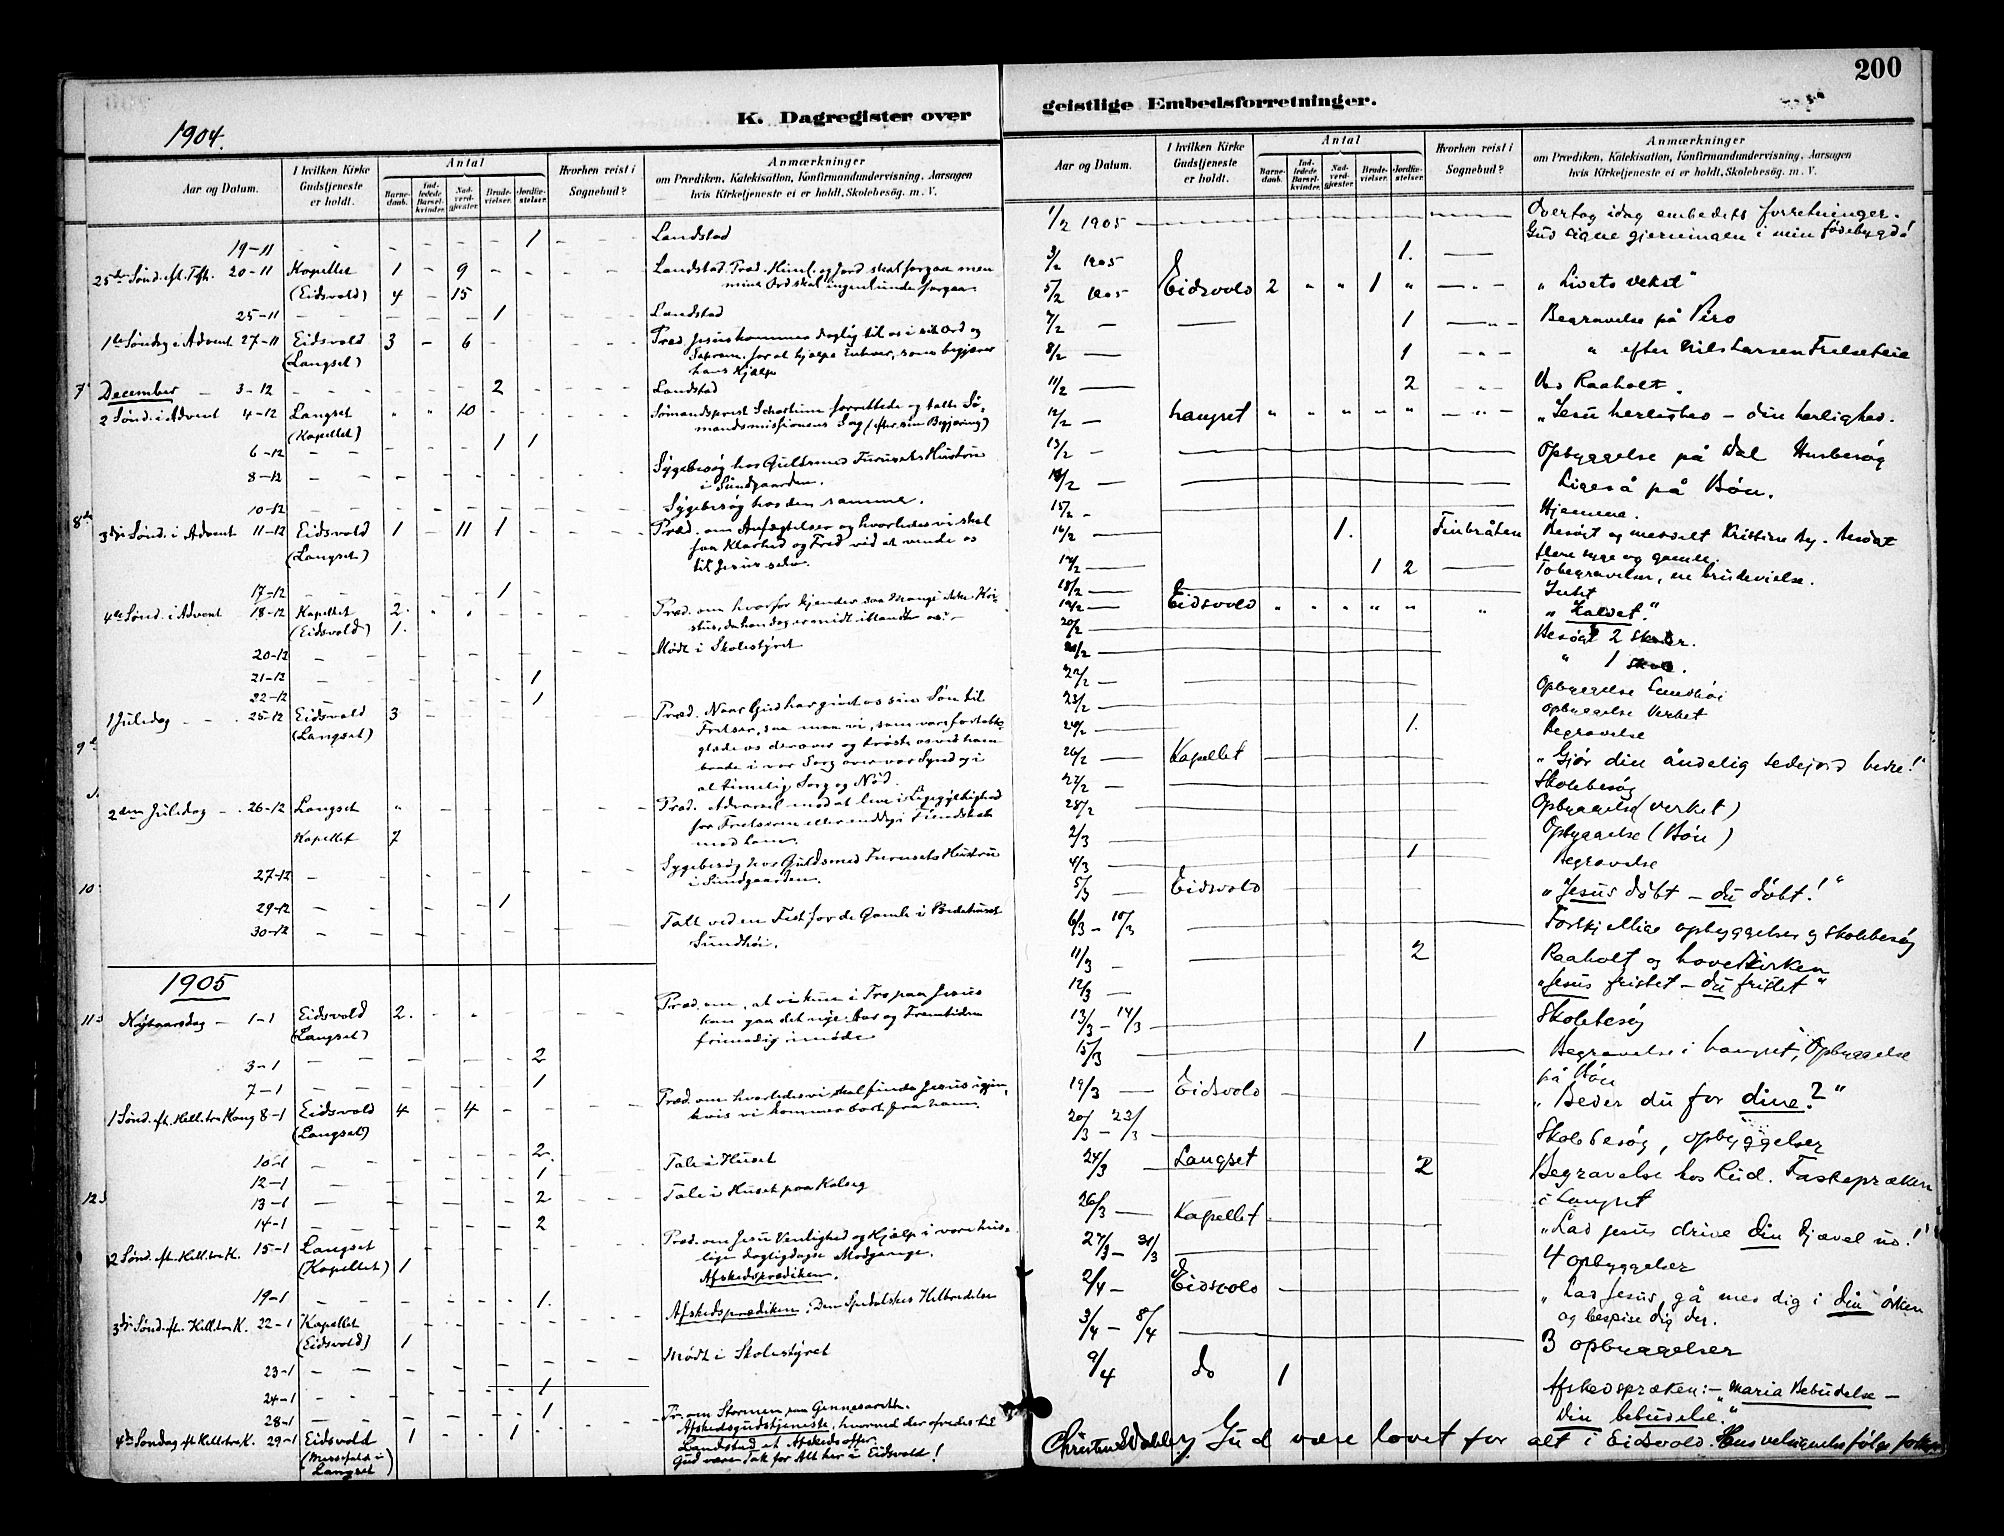 200
K. Dagregister over
1904.
Aar og Datum.
I hvilken Kirke Gudstjeneste er holdt.
Antal
Barnedaab.
Indledede Barselkvinder.
Nadverdgjæster.
Brudevielser.
Jordfæstelser.
Hvorhen reist i Sognebud?
Anmærkninger
om Prædiken, Katekisation, Konfirmandundervisning, Aarsagen
hvis Kirketjeneste ei er holdt, Skolebesøg. m. V.
19-11 - - - - - - 1 - - - Landstad
25de Sønd. eft. Tfh. 20-11 Kapellet 1 - 9 - - - - - Landstad. Præd. Himl. og Jord skal forgaa men
(Eidsvold) 4 - 15 mine Ord skal ingenlunde forgaa.
25-11 - - - - - 1 - - - - Landstad
1ste Søndag i Advent 27-11 Eidsvold 3 - 6 - - - - - Præd. Jesus kommer daglig til os i sit Ord og
(Langset) Sakram. for at hjælpe Enhver, som begjærer
hans Hjælp
7
December - 3-12 - - - - - 2 - - - - Landstad
2 Sønd. i Advent 4-12 Langset " " 10 - - - - - Sømandsprest forrettede og talte Sø-
(Kapellet) mandsmissionens Sag (efter sin Begjæring)
6-12 - - - - - 1 1 - - -
8-12 - - - - - - - - - - Sygebesøg hos Guldsmed Furusets Hustru
i Sundgaarden.
10-12 - - - - - - - - - - Sygebesøg hos den samme.
8de
3dje Sønd. i Advent 11-12 Eidsvold 1 - 11 1 - - - - Præd. om Anfægtelser og hvorledes vi skal
(Langset) faa Klarhed og Fred ved at vende os
til Jesus selv.
17-12 - - - - - 1 - - - -
4de Sønd. i Advent 18-12 Kapellet 2. - - - - - - - Præd. om hvorfor kjender saa Mange ikke Kri-
(Eidsvold) 1. stus, da han dog er midt iblandt os?
20-12 - - - - - - - - - Møde i Skolestyret
21-12 - - - - - - 1 - - -
22-12 - - - - - - 1 - - -
1 Juledag - - . 25-12 Eidsvold 3 - - - - - - - Præd. Naar Gud har givet os sin Søn til
(Langset) Frelser, saa maa vi, som vare fortabte,
glæde os derover og trøste os ved ham
baade i vor Sorg over vor Synd og i
al timelig Sorg og Nød.
9de
2den Juledag - . 26-12 Langset " Præd. Advarsel mod at leve i Ligegyldighed
Kapellet 7 for Frelseren eller endog i Fiendskab
mod ham.
27-12 - - - - - - - - - Sygebesøg hos Guldsmed Furusets Hustru
i Sundgaarden.
10
29-12 - - - - - 1 - - - -
30-12 - - - - - - - - - Talt ved en Fest for de Gamle i Bedehuset
Sundhøi.
1905
11
Nytaarsdag - 1-1 Eidsvold 2. - - - - - - - Præd. om, at vi kun i Tro paa Jesus
(Langset) kan gaa det nye Aar og Fremtiden
frimodig imøde
3-1 - - - - - - 2 - - -
7-1 - - - - - - 1 - - -
1 Sønd. eft. Hell.tre Kong 8-1 Eidsvold 4 - 4 - - - - - Præd. om hvorledes vi skal finde Jesus igjen,
(Langset) hvis vi kommer bort fra ham.
10-1 - - - - - - 2. - - - Tale i Huset
12-1 - - - - - - 1 - - - Tale i Huset paa
13-1 - - - - - - 2 - - -
14-1 - - - - - - 2 - - -
12
2 Sønd. eft. Hell.tre K. 15-1 Langset Præd. om Jesu Venlighed og Hjælp i vore hus-
(Kapellet) 1 lige dagligdagse Modgange.
Afskedsprædiken.
19-1 - - - - - - 1. - - -
3dje Sønd. eft. Hell.tre K. 22-1 Kapellet Afskedsprædiken. Den Spedalskes Helbredelse
(Eidsvold) 1
23-1 - - - - - - - - - Mødt i Skolestyret
24-1 - - - - - - 1 - - -
28-1 - - - - - - 1 - - -
4de Søndag eft. Hell.tre K. 29-1 Eidsvold 1 - - 1 - Pr. om Stormen paa Gennesareth.
(Messefald i Langset) Afskedsgudstjeneste, hvorved der ofredes til
Landstad et Afskedsoffer.
Gud være Tak for Alt her i Eidsvold!
geistlige Embedsforretninger.
Aar og Datum.
I hvilken Kirke Gudstjeneste er holdt.
Antal
Barnedaab.
Indledede Barselkvinder.
Nadverdgjæster.
Brudevielser.
Jordfæstelser.
Hvorhen reist i Sognebud?
Anmærkninger
om Prædiken, Katekisation, Konfirmandundervisning, Aarsagen
hvis Kirketjeneste ei er holdt, Skolebesøg. m. V.
1/2 1905 - Overtog idag embedets forretninger.
Gud signe gjerningen i min fødebygd!
3/2 1905 1.
5/2 1905 Eidsvold 2 " " 1 " - " - "Livets vekst"
7/2 - - 1 - Begravelse på Piro
8/2 - 1 - " efter Nils Larsen
11/2 - 2 - Ved Raaholt.
12/2 - Langset " " " " " - "Jesu herlighed - din herlighed.
13/2 - Opbyggelse på Dal Husbesøg
14/2 - Ligeså på Bøn.
15/2 - Hjemme.
16/2 - 1. Finbråten Besøgt og meddelt Kristine By. Besøgt
flere syge og gamle.
17/2 - 1 2 - To begravelser, en brudevielse.
18/2 - Intet
19/2 - Eidsvold " " " " " " "Kaldet."
20/2 - Besøgt 2 skoler.
21/2 - " 1 skole.
22/2 - Opbyggelse Sundhøi
23/2 - Opbyggelse Verket
24/2 - 1. Begravelse
26/2 - Kapellet "Gjør din åndelig sedejord bedre!"
27/2 - Skolebesøg
28/2 - Opbyggelse (Verket)
2/3 - Opbyggelse (Bøn)
4/3 - 1 Begravelse
5/3 - Eidsvold "Jesus døbt - du døbt!"
6/3 - 10/3 Forskjellige opbyggelser og skolebesøg
11/3 - 2 Raaholt og hovedkirken
12/3 - "Jesus fristet - du fristet"
13/3 - 14/3 Skolebesøg
15/3 - 1 Begravelse i Langset, Opbyggelse
på Bøn
19/3 - Eidsvold "Beder du for dine?"
20/3 - 23/3 Skolebesøg, opbyggelser
24/3 - Langset 2 Begravelse hos Rud. Fastepræken
i Langset
26/3 - Kapellet "Lad Jesus drive din djævel ud!"
27/3 - 31/3 4 opbyggelser
2/4 - Eidsvold "Lad Jesus gå med dig i din ørken
og bespise dig der.
3/4 - 8/4 3 opbyggelser
9/4 do 1 Afskedspræken: - "Maria Bebudelse -
Din bebudelse."
Gud være lovet for alt i Eidsvold. Hans velsignelse følge